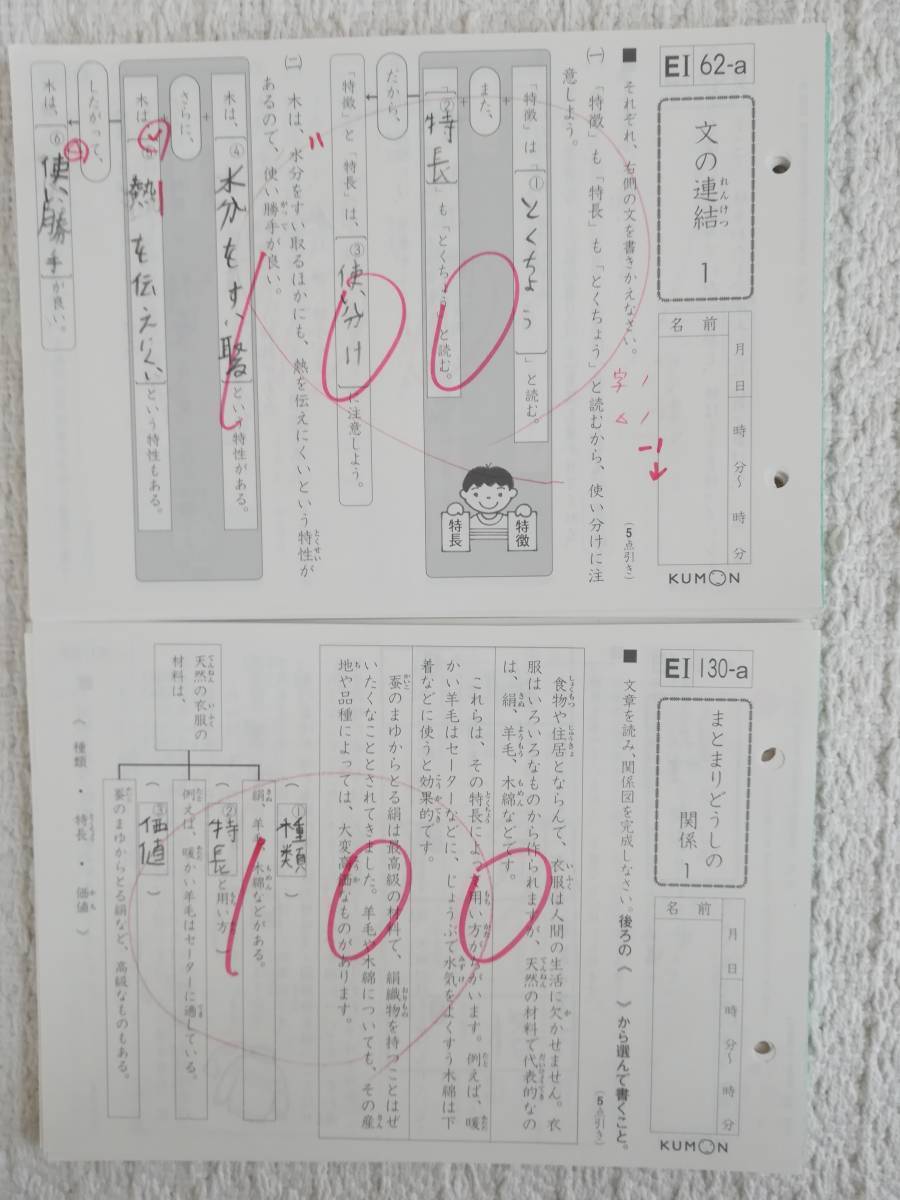 EI 62-a
文の連結 1
れんけつ
名前
月 日 時 分〜 時 分
KUMON
■ それぞれ、右側の文を書きかえなさい。
(5点引き)
字 /
△ /
-1
(一) 「特徴」も「特長」も「とくちょう」と読むから、使い分けに注
意しよう。
「特徴」は「①とくちょう」と読む。
また、
「②特長」も「とくちょう」と読む。
特徴
特長
だから、
「特徴」と「特長」は、③使い分けに注意しよう。
(二) 木は、水分をすい取るほかにも、熱を伝えにくいという特性が
とくせい
あるので、使い勝手が良い。
かって
木は、④水分をすい取るという特性がある。
さらに、
木は、⑤熱を伝えにくいという特性もある。
したがって、
木は、⑥使い勝手が良い。
EI 130-a
まとまりどうしの
関係 1
名前
月 日 時 分〜 時 分
KUMON
■ 文章を読み、関係図を完成しなさい。後ろの( )から選んで書くこと。
(5点引き)
食物や住居とならんで、衣服は人間の生活に欠かせません。衣
服はいろいろなものから作られますが、天然の材料で代表的なの
は、絹、羊毛、木綿などです。
これらは、その特長によって用い方がちがいます。例えば、暖
かい羊毛はセーターなどに、じょうぶで水気をよくすう木綿は下
着などに使うと効果的です。
蚕のまゆからとる絹は最高級の材料で、絹織物を持つことはぜ
いたくなこととされてきました。羊毛や木綿についても、その産
地や品種によっては、大変高価なものがあります。
天然の衣服の
材料は、
(①種類)
絹、羊毛、木綿などがある。
(②特長と用い方)
例えば、暖かい羊毛はセーターに適している。
(③価値)
蚕のまゆからとる絹など、高級なものもある。
(種類・特長・価値)